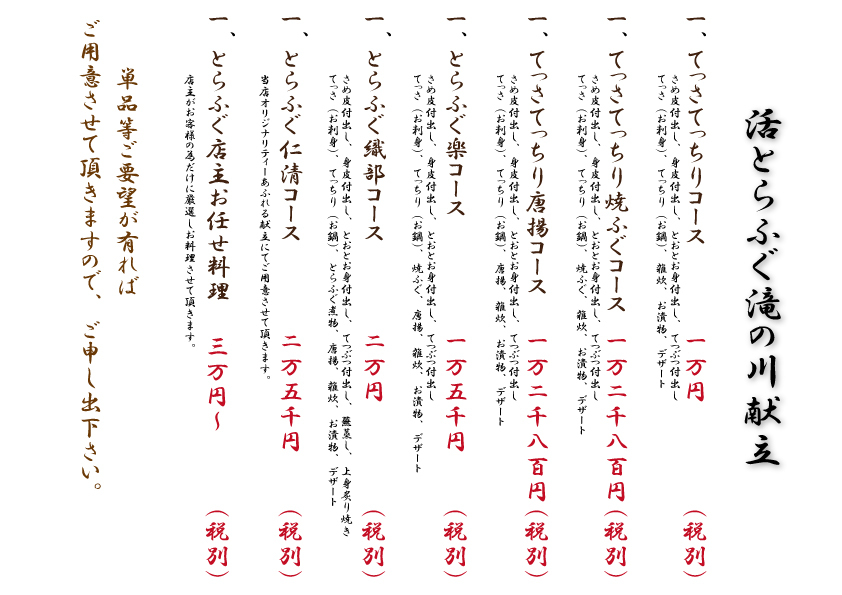 活とらふぐ滝の川献立
一、てっさてっちりコース 一万円 （税別）
さめ皮付出し、身皮付出し、とおとお身付出し、てつぶつ付出し
てっさ（お刺身）、てっちり（お鍋）、雑炊、お漬物、デザート
一、てっさてっちり焼ふぐコース 一万二千八百円（税別）
さめ皮付出し、身皮付出し、とおとお身付出し、てつぶつ付出し
てっさ（お刺身）、てっちり（お鍋）、焼ふぐ、雑炊、お漬物、デザート
一、てっさてっちり唐揚コース 一万二千八百円（税別）
さめ皮付出し、身皮付出し、とおとお身付出し、てつぶつ付出し
てっさ（お刺身）、てっちり（お鍋）、唐揚、雑炊、お漬物、デザート
一、とらふぐ楽コース 一万五千円 （税別）
さめ皮付出し、身皮付出し、とおとお身付出し、てつぶつ付出し
てっさ（お刺身）、てっちり（お鍋）、焼ふぐ、唐揚、雑炊、お漬物、デザート
一、とらふぐ織部コース 二万円 （税別）
さめ皮付出し、身皮付出し、とおとお身付出し、てつぶつ付出し、蕪蒸し、上身炙り焼き
てっさ（お刺身）、てっちり（お鍋）、とらふぐ煮物、唐揚、雑炊、お漬物、デザート
一、とらふぐ仁清コース 二万五千円 （税別）
当店オリジナリティーあふれる献立にてご用意させて頂きます。
一、とらふぐ店主お任せ料理 三万円～ （税別）
店主がお客様の為だけに厳選しお料理させて頂きます。
単品等ご要望が有れば
ご用意させて頂きますので、ご申し出下さい。